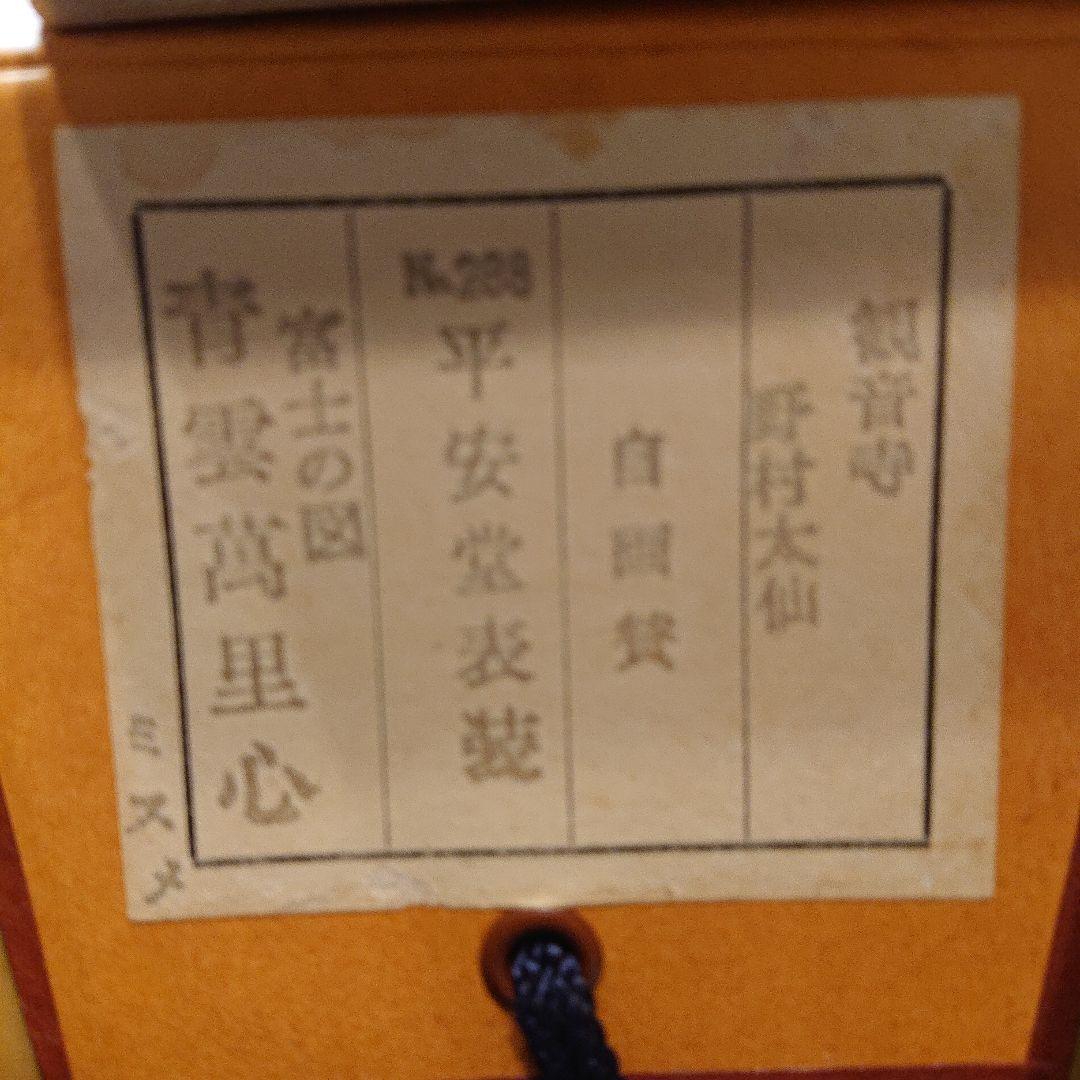 観音寺
野村太仙
自画賛
No.288
平安堂表装
富士の図
青雲萬里心
ミスメ